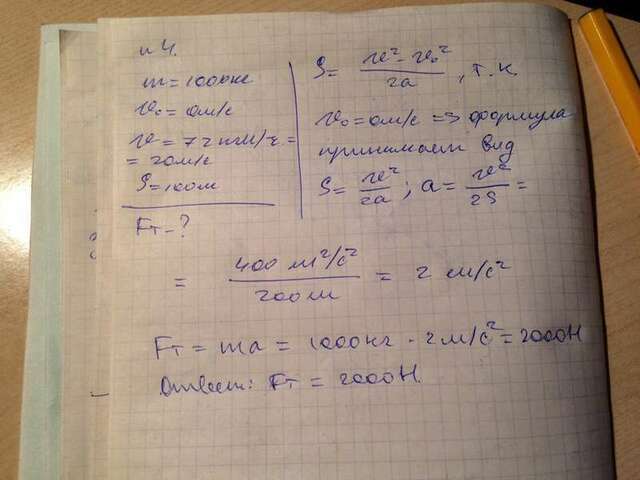 н 4.
m = 1000кг
v₀ = 0м/с
v = 72 км/ч =
= 20м/с
S = 100м
Fт - ?
S = (v² - v₀²)/2a , т.к.
v₀ = 0м/с => формула
принимает вид
S = v²/2a ; a = v²/2S =
= 400 м²/с² / 200м = 2 м/с²
Fт = ma = 1000кг · 2м/с² = 2000Н
Ответ: Fт = 2000Н.